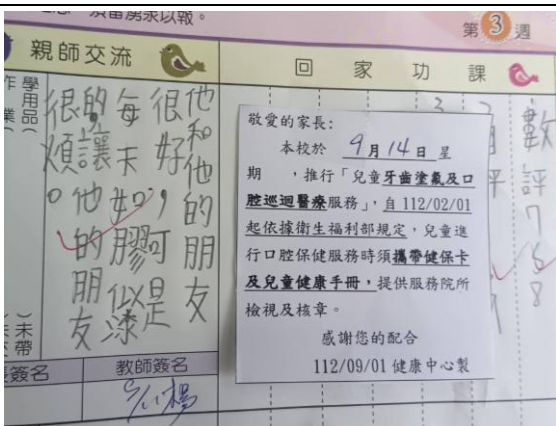 湧泉以報。
第3週
親師交流
回家功課
學用品
未帶
他和他的朋友
很好,可是
每天如膠似漆
的,讓他的朋友
很煩。
數評
敬愛的家長:
本校於 9月14日 星
期 ,推行「兒童牙齒塗氟及口
腔巡迴醫療服務」,自 112/02/01
起依據衛生福利部規定,兒童進
行口腔保健服務時須攜帶健保卡
及兒童健康手冊,提供服務院所
檢視及核章。
感謝您的配合
112/09/01 健康中心製
簽名
教師簽名
楊